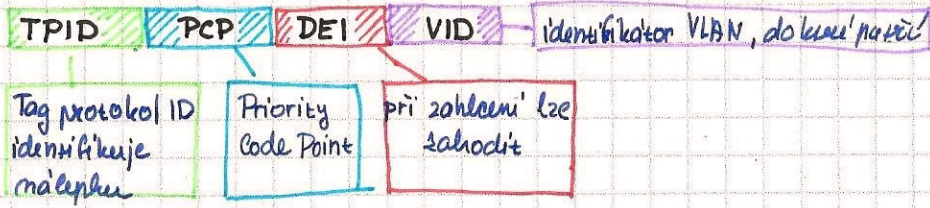 TPID PCP DEI VID identifikátor VLAN, do které patří
Tag protokol ID
identifikuje
nálepku
Priority
Code Point
při zahlcení lze
zahodit